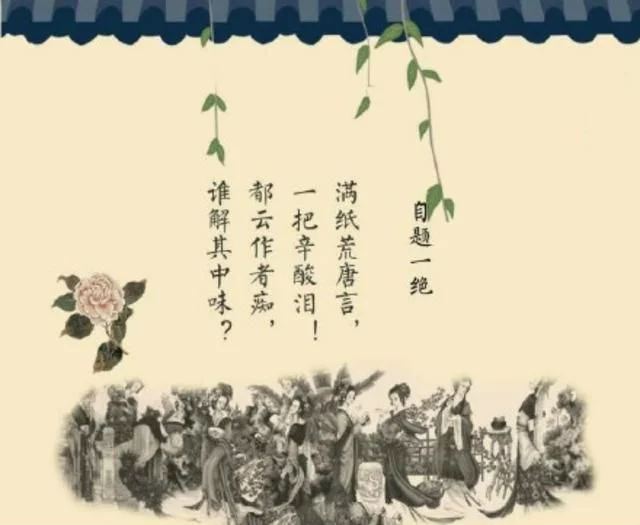 自题一绝
满纸荒唐言，
一把辛酸泪！
都云作者痴，
谁解其中味？